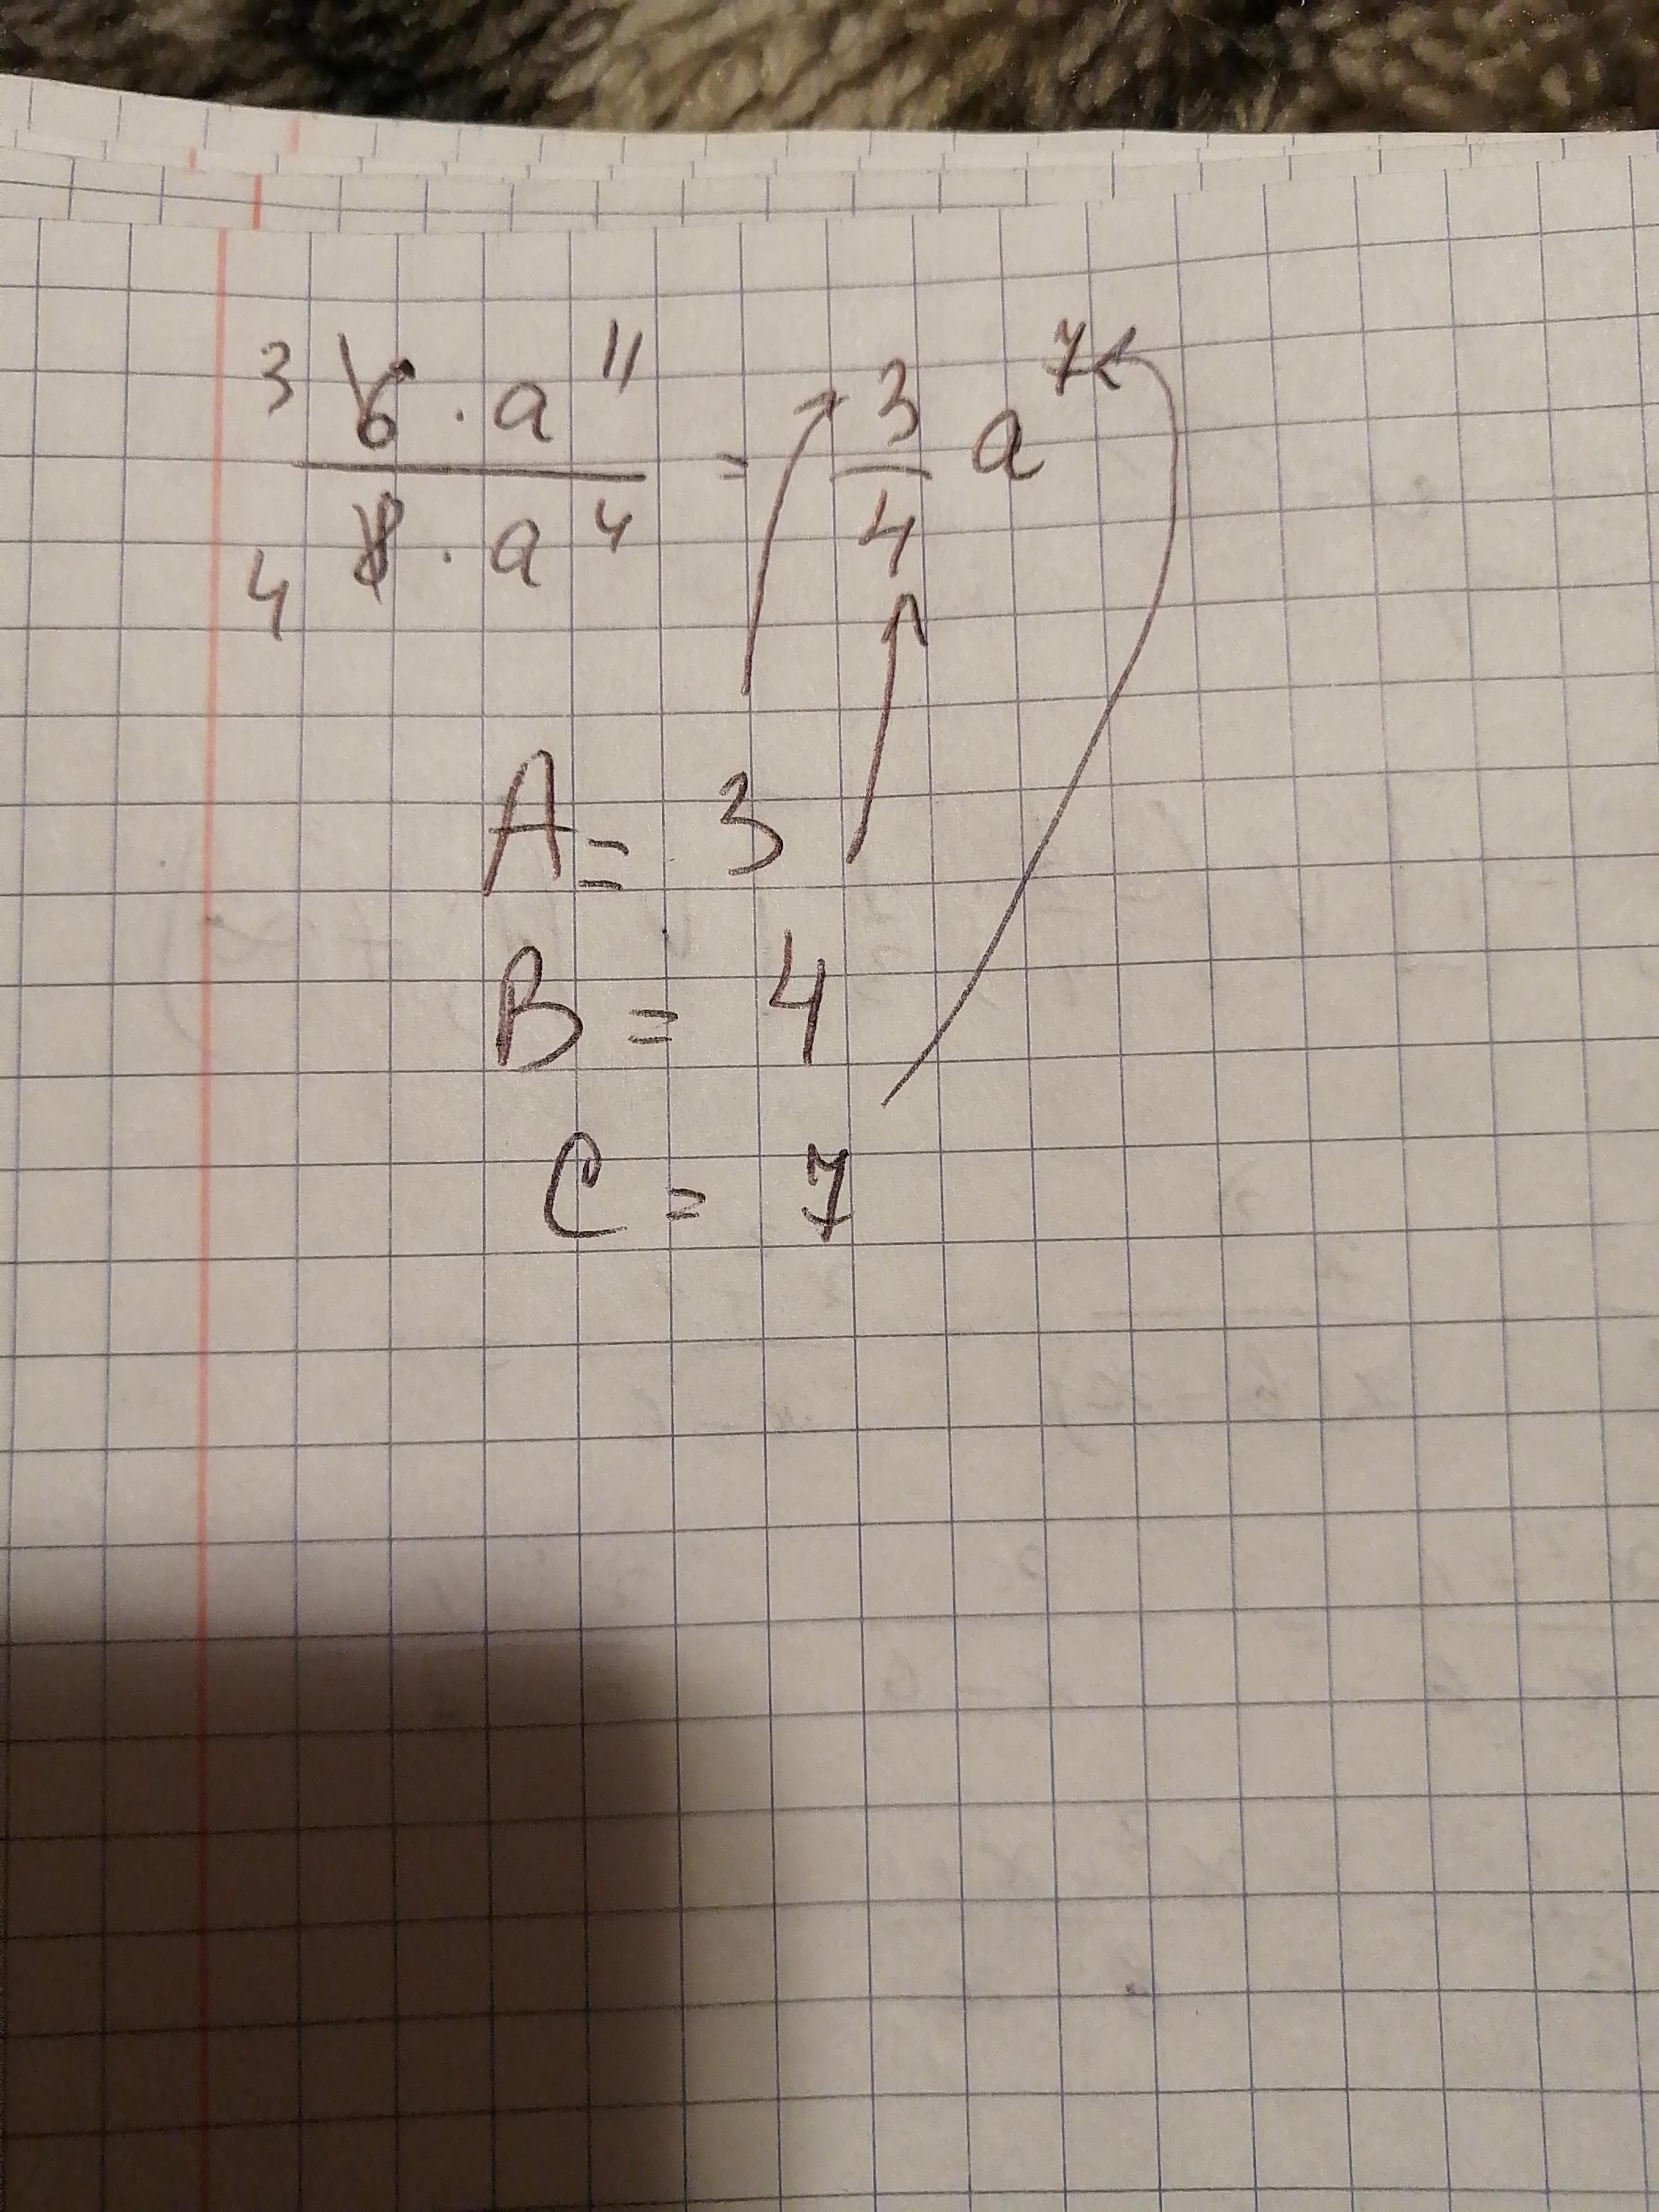 3 6 · a¹¹ / 4 8 · a⁴ = 3/4 a⁷
A = 3
B = 4
C = 7